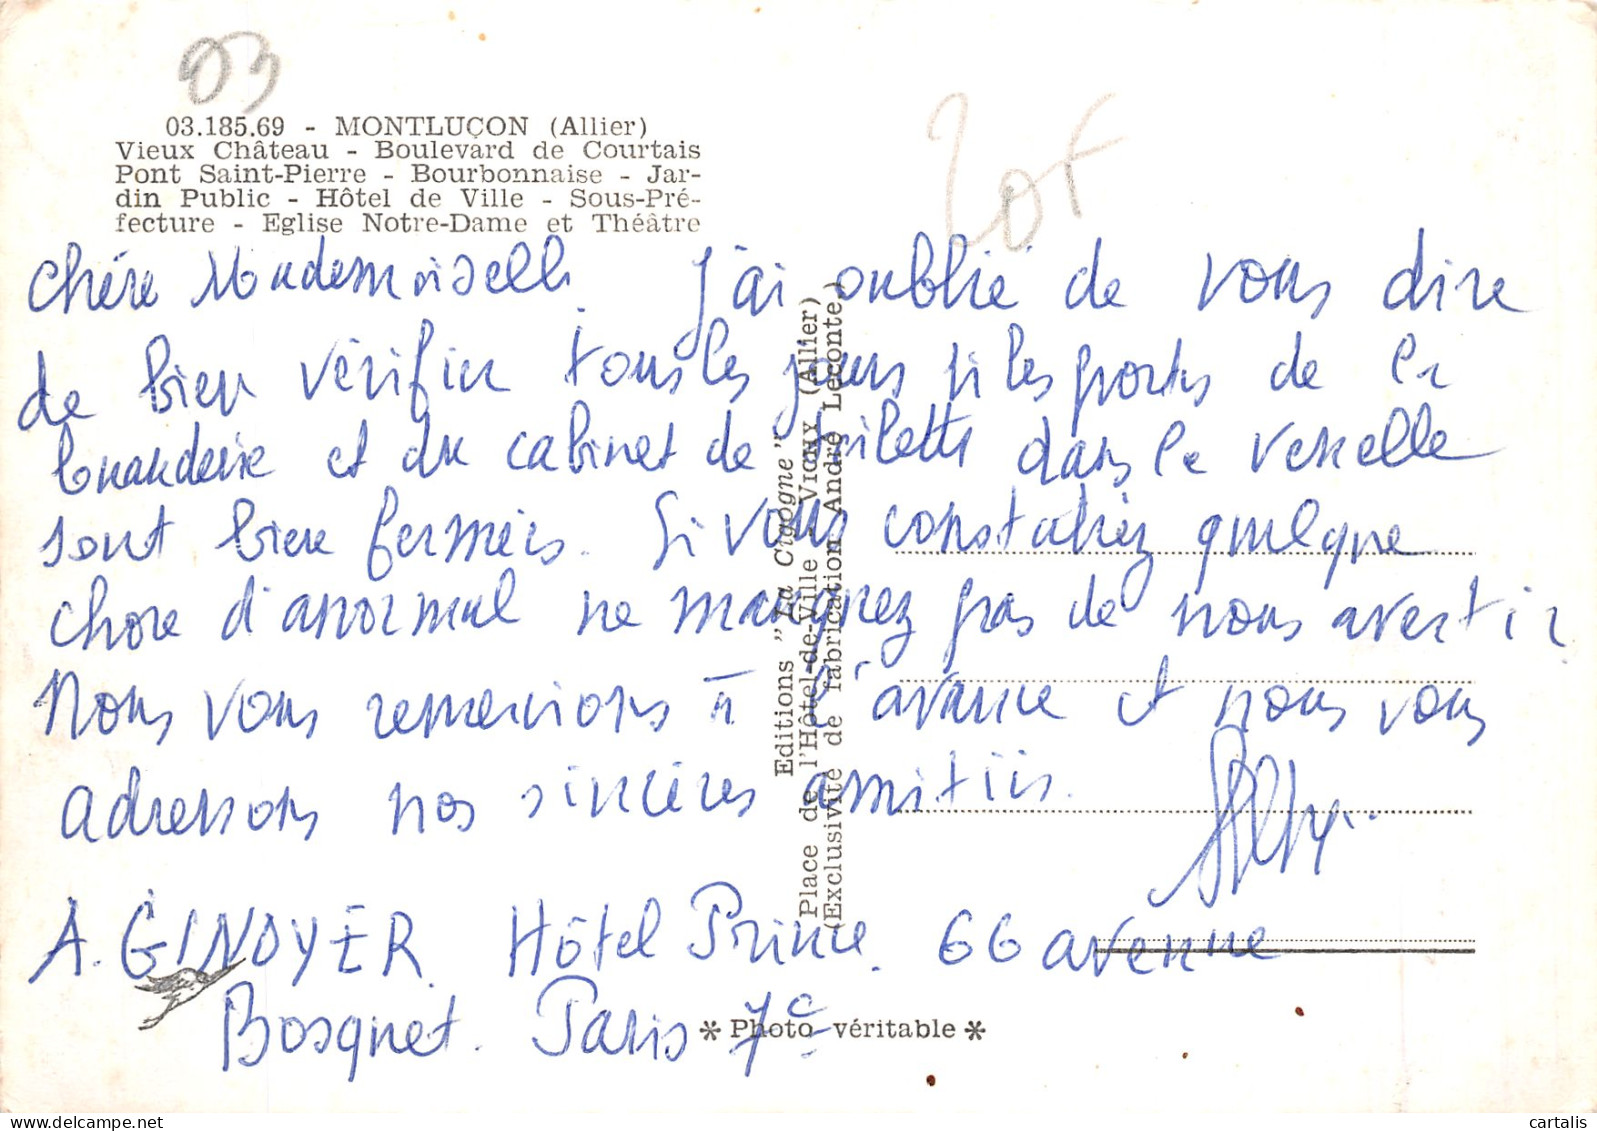 03
20F
03.185.69 - MONTLUÇON (Allier)
Vieux Château - Boulevard de Courtais
Pont Saint-Pierre - Bourbonnaise - Jar-
din Public - Hôtel de Ville - Sous-Pré-
fecture - Eglise Notre-Dame et Théâtre
Chère Mademoiselle. J'ai oublié de vous dire
de bien vérifier tous les jours si les portes de la
buanderie et du cabinet de toilette dans la venelle
sont bien fermées. Si vous constatiez quelque
chose d'anormal ne manquez pas de nous avertir
Nous vous remercions à l'avance et nous vous
adressons nos sincères amitiés.
A. GINOYER Hôtel Prince. 66 avenue
Bosquet. Paris 7e
Editions "La Cigogne"
Place de l'Hôtel-de-Ville - VICHY (Allier)
(Exclusivité de fabrication André Leconte.)
* Photo véritable *
cartalis